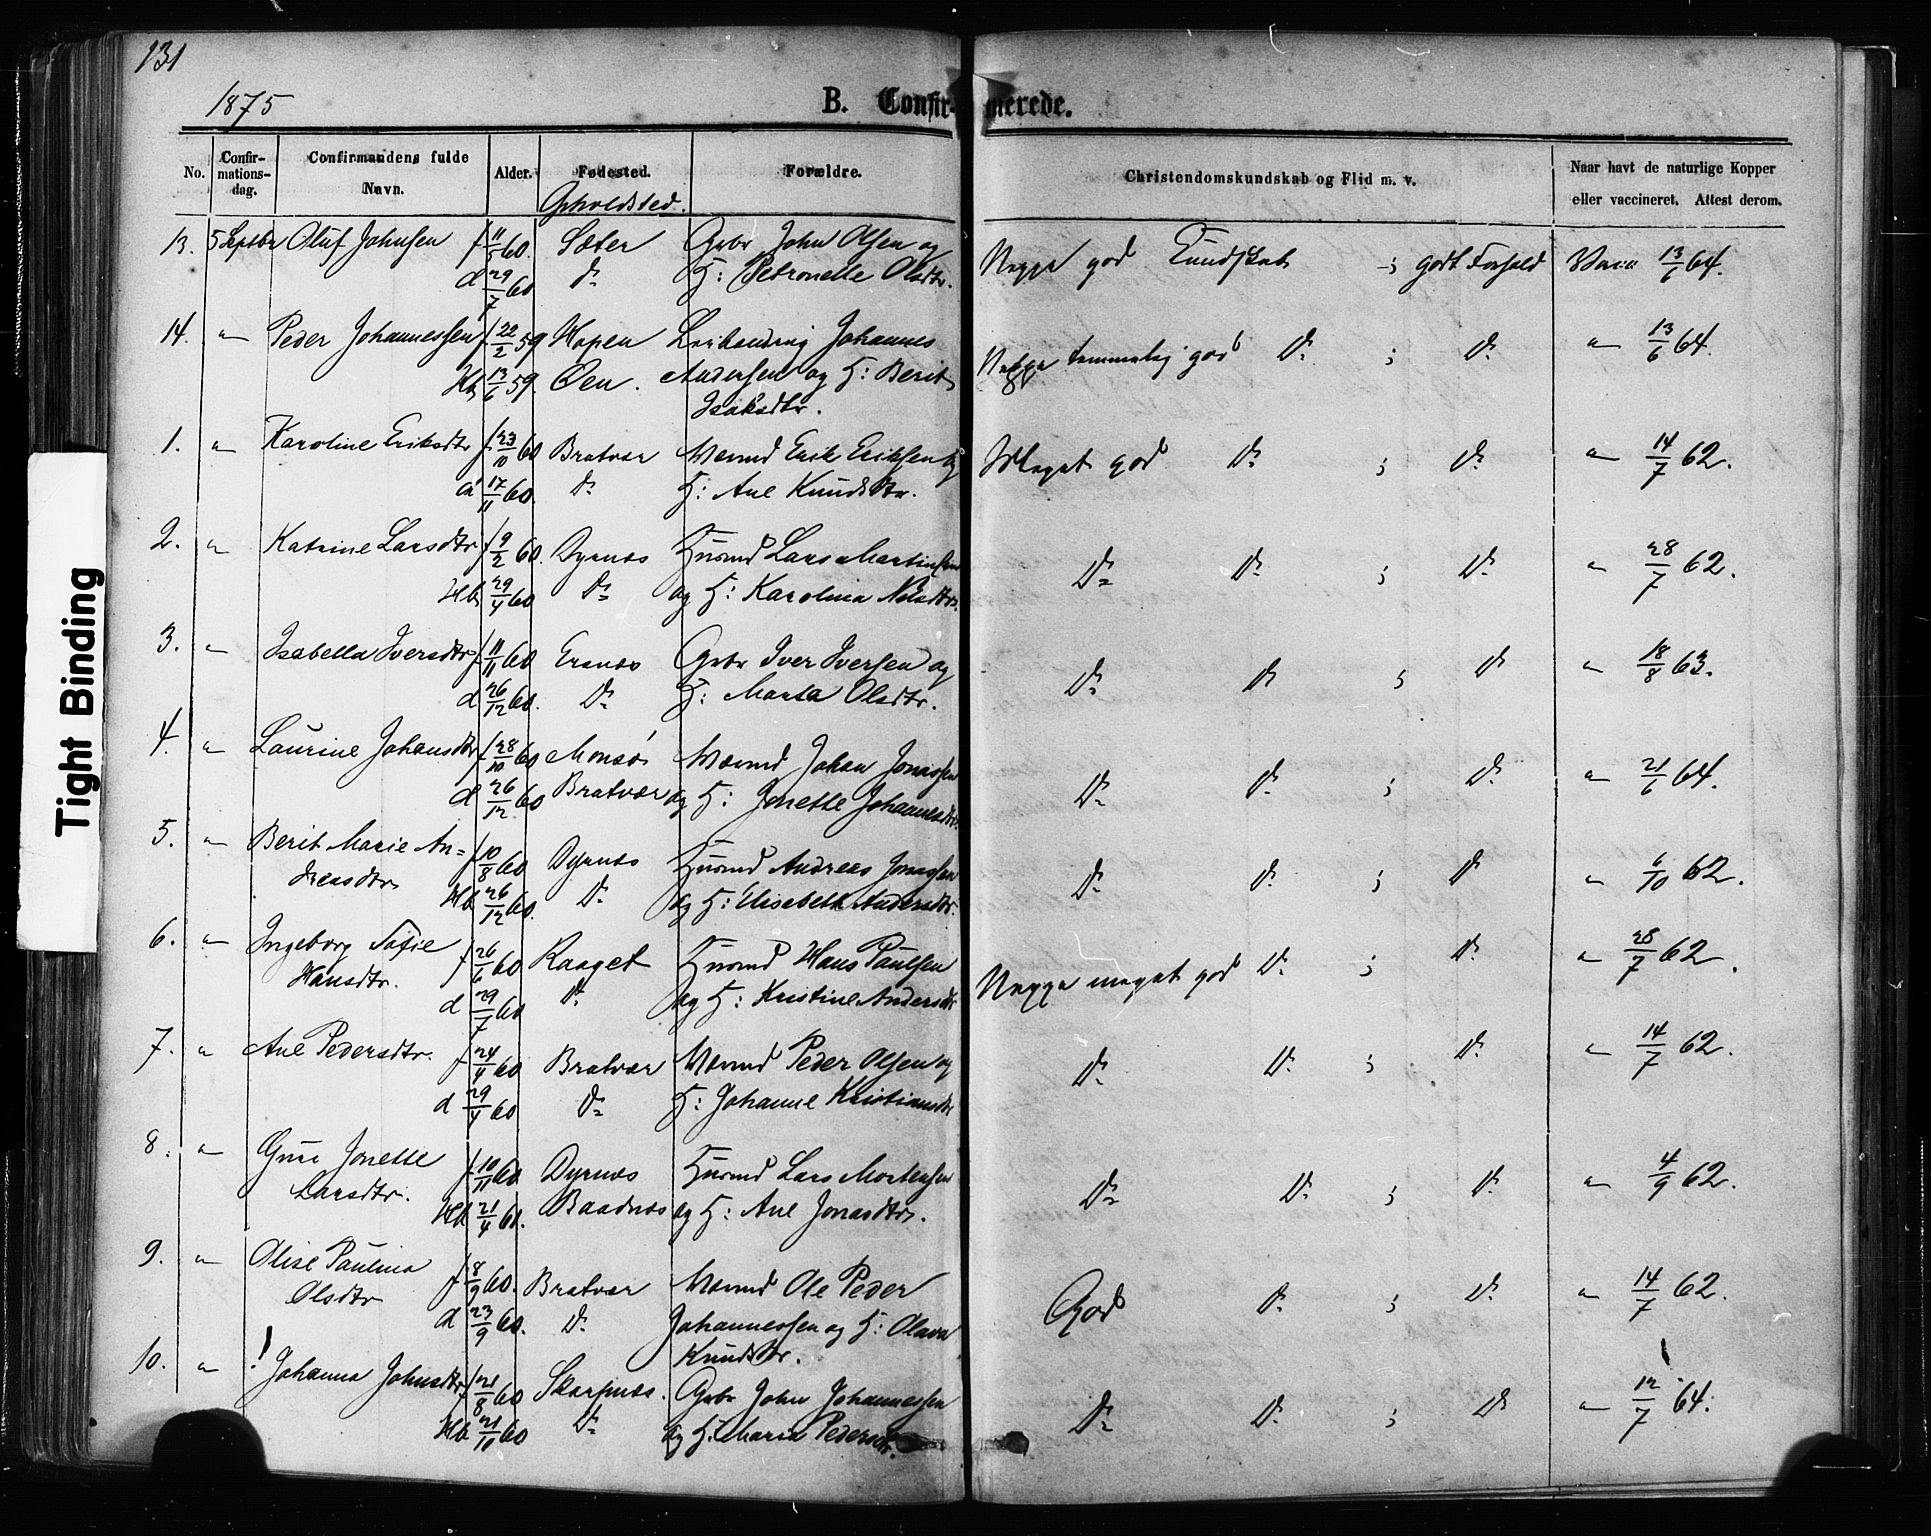 131
1875
B. Confir- merede.
No. Confir-mations-dag. Confirmandens fulde Navn. Alder. Fødested. Forældre. Christendomskundskab og Flid m. v. Naar havt de naturlige Kopper eller vaccineret. Attest derom.
Opholdsted.
13. 5 Septbr Oluf Johnsen f 11/5 60. Sæter Gbr John Olsen og Neppe god Kundskab ; godt Forhold Vacc 13/6 64.
d 29/7 60 Do H: Petronelle Olsdtr.
14. " Peder Johannessen f 22/2 59 Hopen Johannes Neppe temmelig god Do ; Do " 13/6 64.
Hb 13/6 59. Øen. Andersen og H: Berit
Isaksdtr.
1. " Karoline Eriksdtr f 23/10 60 Bratvær Mand Erik Eriksen og Meget god Do ; Do " 14/7 62.
d 17/11 60. Do H: Ane Knudsdtr.
2. " Katrine Larsdtr f 9/2 60. Dyrnes Husmd Lars Martinsen Do Do ; Do " 28/7 62.
Hb 29/4 60 Do og H: Karolina Nilsdtr.
3. " Isabella Iversdtr f 11/11 60 Ersnes Gbr Iver Iversen og Do Do ; Do " 18/8 63.
d 26/12 60. Do H: Marta Olsdtr.
4. " Laurine Johansdtr f 28/10 60 Monsø Johan Jonassen Do Do ; Do " 21/6 64.
d 26/12 60 Bratvær og H: Jonette Johannesdtr.
5. " Berit Marie An= f 10/8 60 Dyrnes Husmd Andreas Jonassen Do Do ; Do " 6/10 62.
dreasdtr Hb 26/12 60. Do og H: Elisabeth Andersdtr.
6. " Ingeborg Sofie f 26/6 60 Raaget Husmd Hans Paulsen Neppe meget god Do ; Do " 28/7 62.
Hansdtr. d 29/7 60 Do og H: Kristine Andersdtr
7. " Ane Pedersdtr. f 24/4 60 Bratvær Peder Olsen og Do Do ; Do " 14/7 62.
d 29/4 60 Do H: Johanne Kristiansdtr
8. " Guri Jonette f 10/11 60 Dyrnes Husmd Lars Mortensen Do Do ; Do " 4/9 62.
Larsdtr. Hb 21/4 61. Baadnes og H: Ane Jonasdtr.
9. " Olise Paulina f 8/9 60. Bratvær Ole Peder God Do ; Do " 14/7 62.
Olsdtr d 23/9 60. Do Johannessen og H: Olava
Knudsdtr.
10. " ! Johanna Johnsdtr f 21/8 60 Skarpnes. Gbr John Johannessen Do Do ; Do " 12/7 64. !
Hb 21/10 60 Do og H: Maria Pedersdtr.
Tight Binding